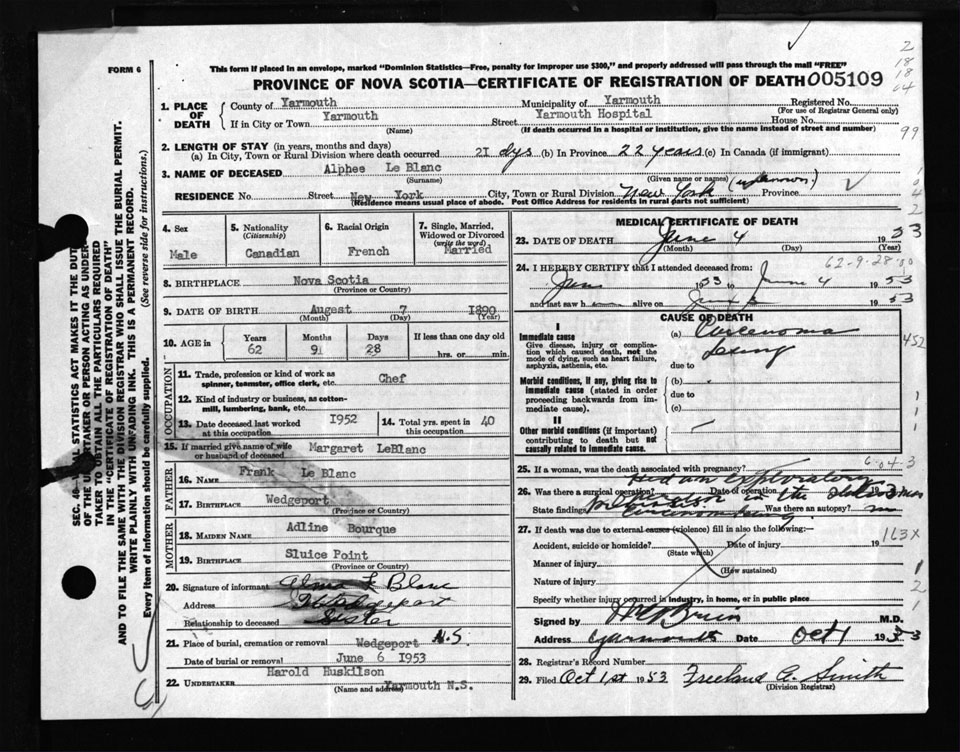 This form if placed in an envelope, marked "Dominion Statistics—Free, penalty for improper use $300," and properly addressed will pass through the mail "FREE"
FORM 6
PROVINCE OF NOVA SCOTIA—CERTIFICATE OF REGISTRATION OF DEATH 005109
2
18
18
04
99
1. PLACE OF DEATH
County of Yarmouth Municipality of Yarmouth Registered No.
(For use of Registrar General only)
If in City or Town Yarmouth Street Yarmouth Hospital House No.
(Name) (If death occurred in a hospital or institution, give the name instead of street and number)
2. LENGTH OF STAY (in years, months and days)
(a) In City, Town or Rural Division where death occurred 21 dys (b) In Province 22 years (c) In Canada (if immigrant)
3. NAME OF DECEASED Alphee Le Blanc
(Surname) (Given name or names) (unknown)
RESIDENCE No. Street New York City, Town or Rural Division New York Province
(Residence means usual place of abode. Post Office Address for residents in rural parts not sufficient)
4. Sex Male
5. Nationality (Citizenship) Canadian
6. Racial Origin French
7. Single, Married, Widowed or Divorced (write the word) Married
8. BIRTHPLACE Nova Scotia
(Province or Country)
9. DATE OF BIRTH Augest 7 1890
(Month) (Day) (Year)
10. AGE in Years 62 Months 9 Days 28 If less than one day old hrs. or min.
OCCUPATION
11. Trade, profession or kind of work as spinner, teamster, office clerk, etc. Chef
12. Kind of industry or business, as cotton-mill, lumbering, bank, etc.
13. Date deceased last worked at this occupation 1952
14. Total yrs. spent in this occupation 40
15. If married give name of wife or husband of deceased Margaret LeBlanc
FATHER
16. NAME Frank Le Blanc
17. BIRTHPLACE Wedgeport
(Province or Country)
MOTHER
18. MAIDEN NAME Adline Bourque
19. BIRTHPLACE Sluice Point
(Province or Country)
20. Signature of informant Le Blanc
Address Wedgeport
Relationship to deceased Sister
21. Place of burial, cremation or removal Wedgeport N.S.
Date of burial or removal June 6 1953
22. UNDERTAKER Harold Huskilson
Yarmouth N.S.
(Name and address)
MEDICAL CERTIFICATE OF DEATH
23. DATE OF DEATH June 4 1953
(Month) (Day) (Year)
62-9-28
24. I HEREBY CERTIFY that I attended deceased from:
1953 to June 4 1953
and last saw h alive on 1953
CAUSE OF DEATH
I
Immediate cause
Give disease, injury or complication which caused death, not the mode of dying, such as heart failure, asphyxia, asthenia, etc.
(a) Carcenoma
Lung
due to
Morbid conditions, if any, giving rise to immediate cause (stated in order proceeding backwards from immediate cause).
(b)
due to
(c)
II
Other morbid conditions (if important) contributing to death but not causally related to immediate cause.
25. If a woman, was the death associated with pregnancy?
6-04-3
26. Was there a surgical operation? Had an exploratory Date of operation 19
State findings Was there an autopsy? no
27. If death was due to external causes (violence) fill in also the following:
163X
Accident, suicide or homicide? Date of injury 19
(State which)
Manner of injury
(How sustained)
Nature of injury
Specify whether injury occurred in industry, in home, or in public place
Signed by M.D.
Address Yarmouth Date Oct 1 1953
28. Registrar's Record Number
29. Filed Oct 1st 1953 Freeland A. Smith
(Division Registrar)
SEC. 40— STATISTICS ACT MAKES IT THE DUTY
OF THE UNDERTAKER OR PERSON ACTING AS UNDER-
TAKER TO OBTAIN ALL THE PARTICULARS REQUIRED
IN THE "CERTIFICATE OF REGISTRATION OF DEATH"
AND TO FILE THE SAME WITH THE DIVISION REGISTRAR WHO SHALL ISSUE THE BURIAL PERMIT.
WRITE PLAINLY WITH UNFADING INK. THIS IS A PERMANENT RECORD.
Every item of Information should be carefully supplied. (See reverse side for instructions.)